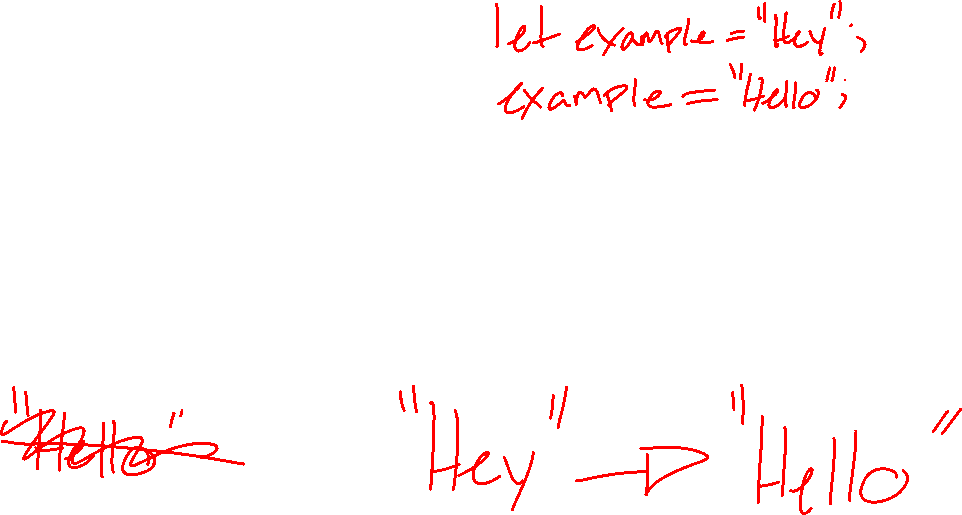 let example = "Hey";
example = "Hello";
"Hello" "Hey" → "Hello"